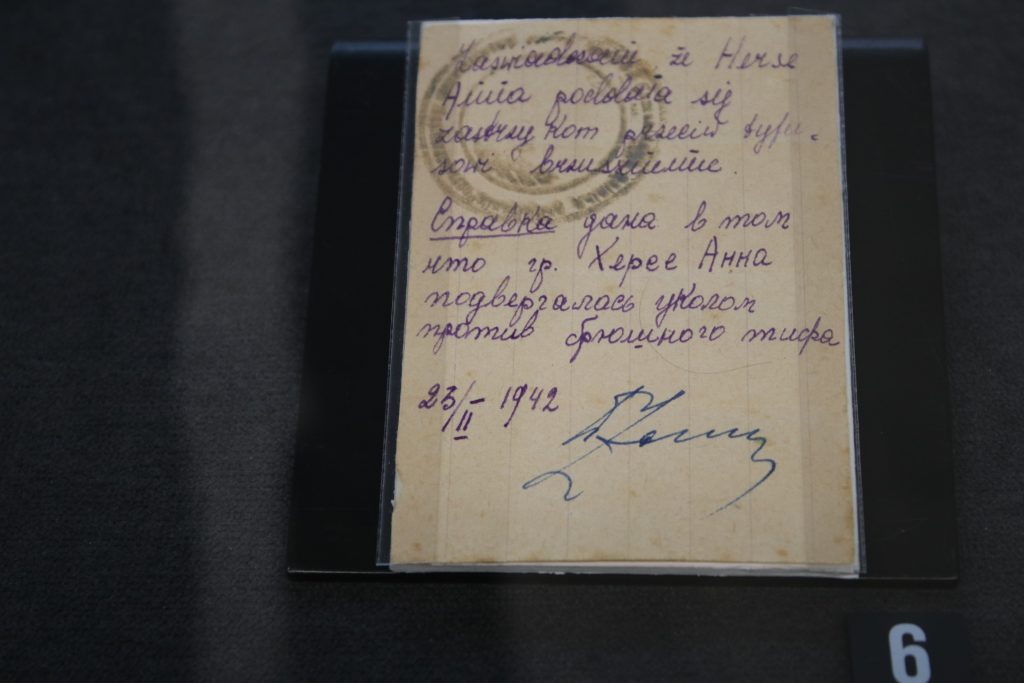 że Herse
Anna poddała się
zastrzykom przeciw tyfu-
sowi brzusznemu.
Справка дана в том
что гр. Херсе Анна
подвергалась уколом
против брюшного тифа
23/II - 1942
6